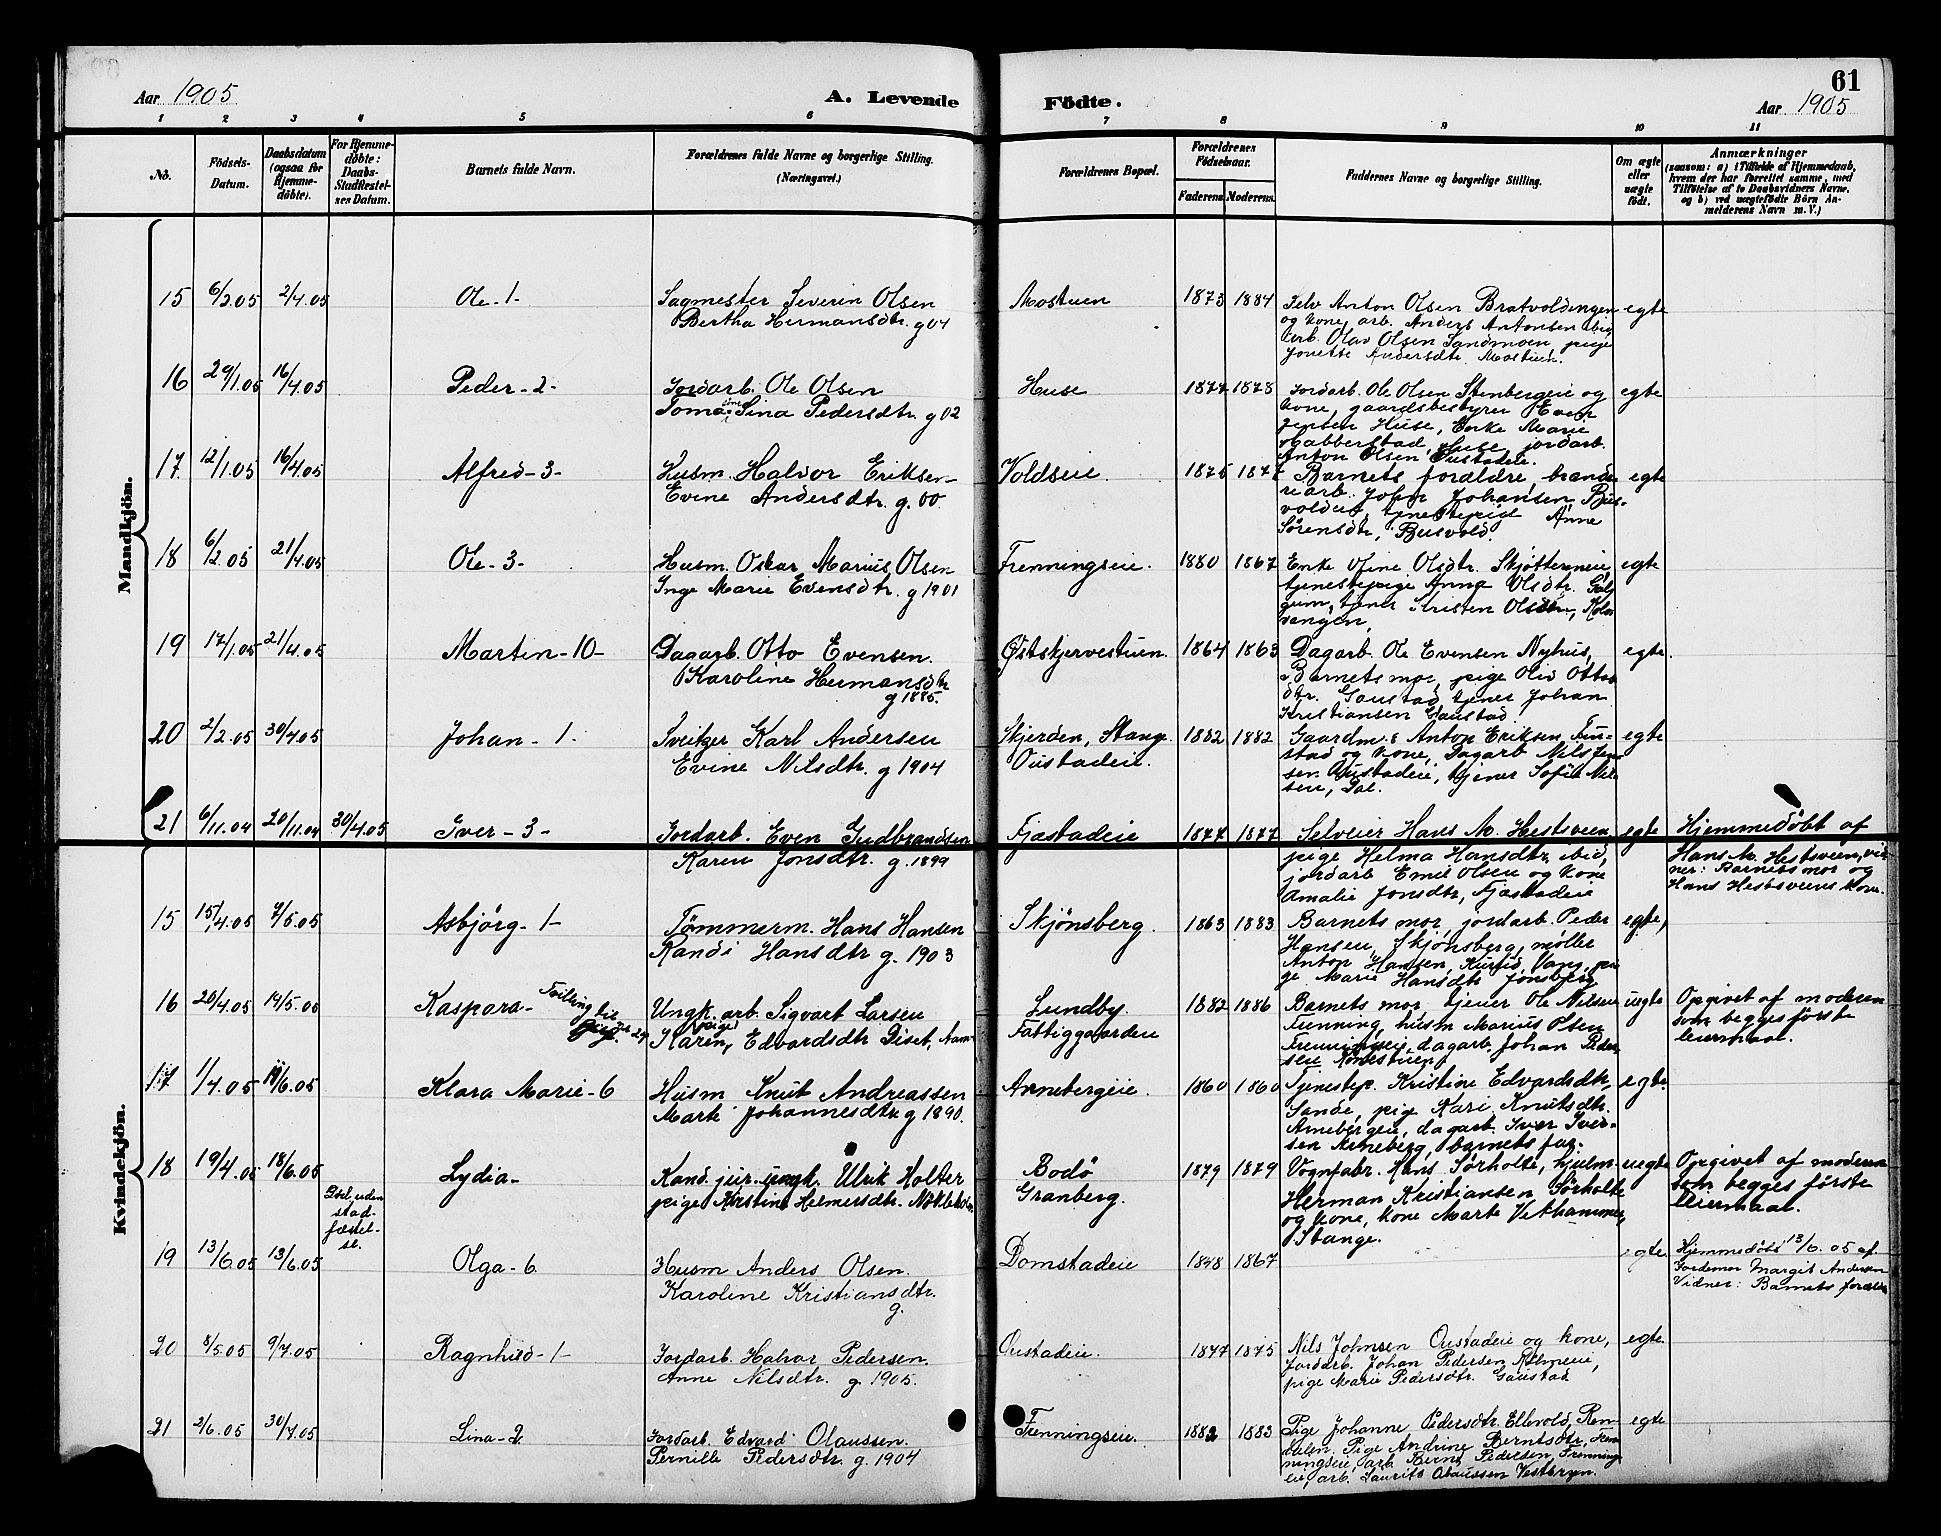 Aar 1905
A. Levende
Födte.
61
Aar 1905
1 2 3 4 5 6 7 8 9 10 11
No.
Födsels-Datum.
Daabsdatum (ogsaa for Hjemmedöbte).
For Hjemmedöbte: Daabs-Stadfæstelses Datum.
Barnets fulde Navn.
Forældrenes fulde Navne og borgerlige Stilling. (Næringsvei.)
Forældrenes Bopæl.
Forældrenes Födselsaar.
Faderens Moderens.
Faddernes Navne og borgerlige Stilling.
Om ægte eller uægte födt.
Anmærkninger
(saasom: a) i Tilfælde af Hjemmedaab, hvem der har forrettet samme, med Tilföielse af to Daabsvidners Navne, og b) ved uægtefödte Börn Anmelderens Navn m. V.)
Mandkjön.
15 6/2.05 2/4.05 Ole - 1 -
Sagmester Severin Olsen
Bertha Hermansdtr. g 04
Mostuen 1873 1884
Selv Anton Olsen Bratvoldengen
og kone, arb. Anders Antonsen ibid
arb. Olav Olsen Sandmoen pige
Jonette Andersdtr. Mostuen.
egte
16 29/1.05 16/4.05 Peder - 2 -
Jordarb. Ole Olsen
Toma Sina Pedersdtr. g 02
Huse 1877 1878
Jordarb. Ole Olsen Stenbergeie og
kone, gaardsbestyrer Even
Jensen Huse, Enke Marie
Gabberstad, Huse, jordarb.
Anton Olsen, Oustadeie.
egte
17 12/1.05 16/4.05 Alfred - 3 -
Husm. Halvor Eriksen
Evine Andersdtr. g. 00.
Voldseie. 1875 1877
Barnets forældre, brænde-
riarb. John Johansen Bus-
vold, tjenestepige Anne
Sörensdtr, Busvold.
egte
18 6/2.05 21/4.05 Ole - 3 -
Husm. Oskar Marius Olsen
Inge Marie Evensdtr. g 1901
Frenningseie. 1880 1867
Enke Ofine Olsdtr. Skjøttereie,
tjenestepige Anna Olsdtr. Gal-
gum, tjener Kristen Olsen, Kol-
vangen,
egte
19 17/1.05 21/4.05 Martin - 10 -
Dagarb. Otto Evensen.
Karoline Hermansdtr
g 1885.
Østskjervestuen. 1864 1863
Dagarb. Ole Evensen Nyhus,
Barnets mor, pige Oliv Ottos
dtr. Gaustad tjener Johan
Kristiansen Gaustad
egte.
20 2/2.05 30/4.05 Johan - 1 -
Sveitzer Karl Andersen
Evine Nilsdtr. g 1904
Skjerden, Stange.
Oustadeie.
1882 1882
Gaardm. Anton Eriksen Fin-
stad og kone, Dagarb Nils Jen-
sen Oustadeie, tjener Sofie Niel-
sen, Dal.
egte
21 6/11.04 20/11.04 30/4.05 Iver - 3 -
Jordarb. Even Gudbrandsen
Karen Jonsdtr. g. 1899
Fjæstadeie 1877 1877
Selveier Hans M. Hestsveen
pige Helma Hansdtr, ibid,
jordarb Emil Olsen og kone
Amalie Jonsdtr, Fjæstadeie
egte
Hjemmedöbt af
Hans M. Hestsveen, vid-
ner: Barnets mor og
Hans Hestsveens kone.
Kvindekjön.
15 15/4.05 7/5.05 Asbjörg - 1 -
Tømmerm. Hans Hansen
Randi Hansdtr g. 1903
Skjönsberg. 1863 1883
Barnets mor, jordarb. Peder
Hansen, Skjönsberg, møller
Anton Hansen, Kurud, Vang, pi-
ge Marie Hansdtr Jönsberg
egte,
16 20/4.05 14/5.05 Kaspara - Tvilling til
Ungk. arb. Sigvart Larsen
(pige) Karen, Edvardsdtr Diset,
Lundby.
Fattiggaarden
1882 1886
Barnets mor, tjener Ole Nilsen
Frenning, husm Marius Olsen
Frenningseie, dagarb. Johan Peder-
sen
uegte
Opgivet af moderen
som begges förste
leiermaal.
17 1/4.05 11/6.05 Klara Marie - 6
Husm Knut Andreassen
Marte Johannesdtr g 1890.
Arnebergeie. 1860 1860
Tjenestep. Kristine Edvardsdtr,
Sande, pige Kari Knutsdtr.
Arnebergeie, dagarb. Iver Iver-
sen Arneberg, barnets far.
egte.
18 19/4.05 18/6.05
Döbt uden
stad-
fæstel-
se.
Lydia -
Kand. jur. ungk. Ulrik Holter
pige Kirstine Helmersdtr. Nökleholm
Bodö
Granberg.
1879 1879
Vognfabr. Hans Sörholte, hjulm.
Herman Kristiansen Sörholte
og kone, kone Marte Vethammer,
Stange.
uegte
Opgivet af moderen
som begges förste
leiermaal.
19 13/6.05 13/6.05 Olga - 6
Husm Anders Olsen.
Karoline Kristiansdtr.
g.
Domstadeie 1848 1867
egte
Hjemmedöbt 13/6.05 af
Jordemor Margit Andersen
Vidner: Barnets forældre
20 8/5.05 9/7.05 Ragnhild - 1 -
Jordarb. Halvor Pedersen.
Anne Nilsdtr. g. 1905.
Oustadeie. 1847 1875
Nils Johnsen Oustadeie og kone,
jordarb. Johan Pedersen
pige Marie Pedersdtr. Gaustad
egte.
21 2/6.05 30/7.05 Lina - 2
Jordarb. Edvard Olaussen.
Pernille Pedersdtr. g. 1904
Frenningseie. 1882 1883
Pige Johanne Pedersdtr. Ellevold, Ren-
dalen. Pige Andrine Berntsdtr, Fren-
ningseie, arb. Bernt Pedersen, Frennings-
eie, arb. Laurits Olaussen Vestbryn.
egte